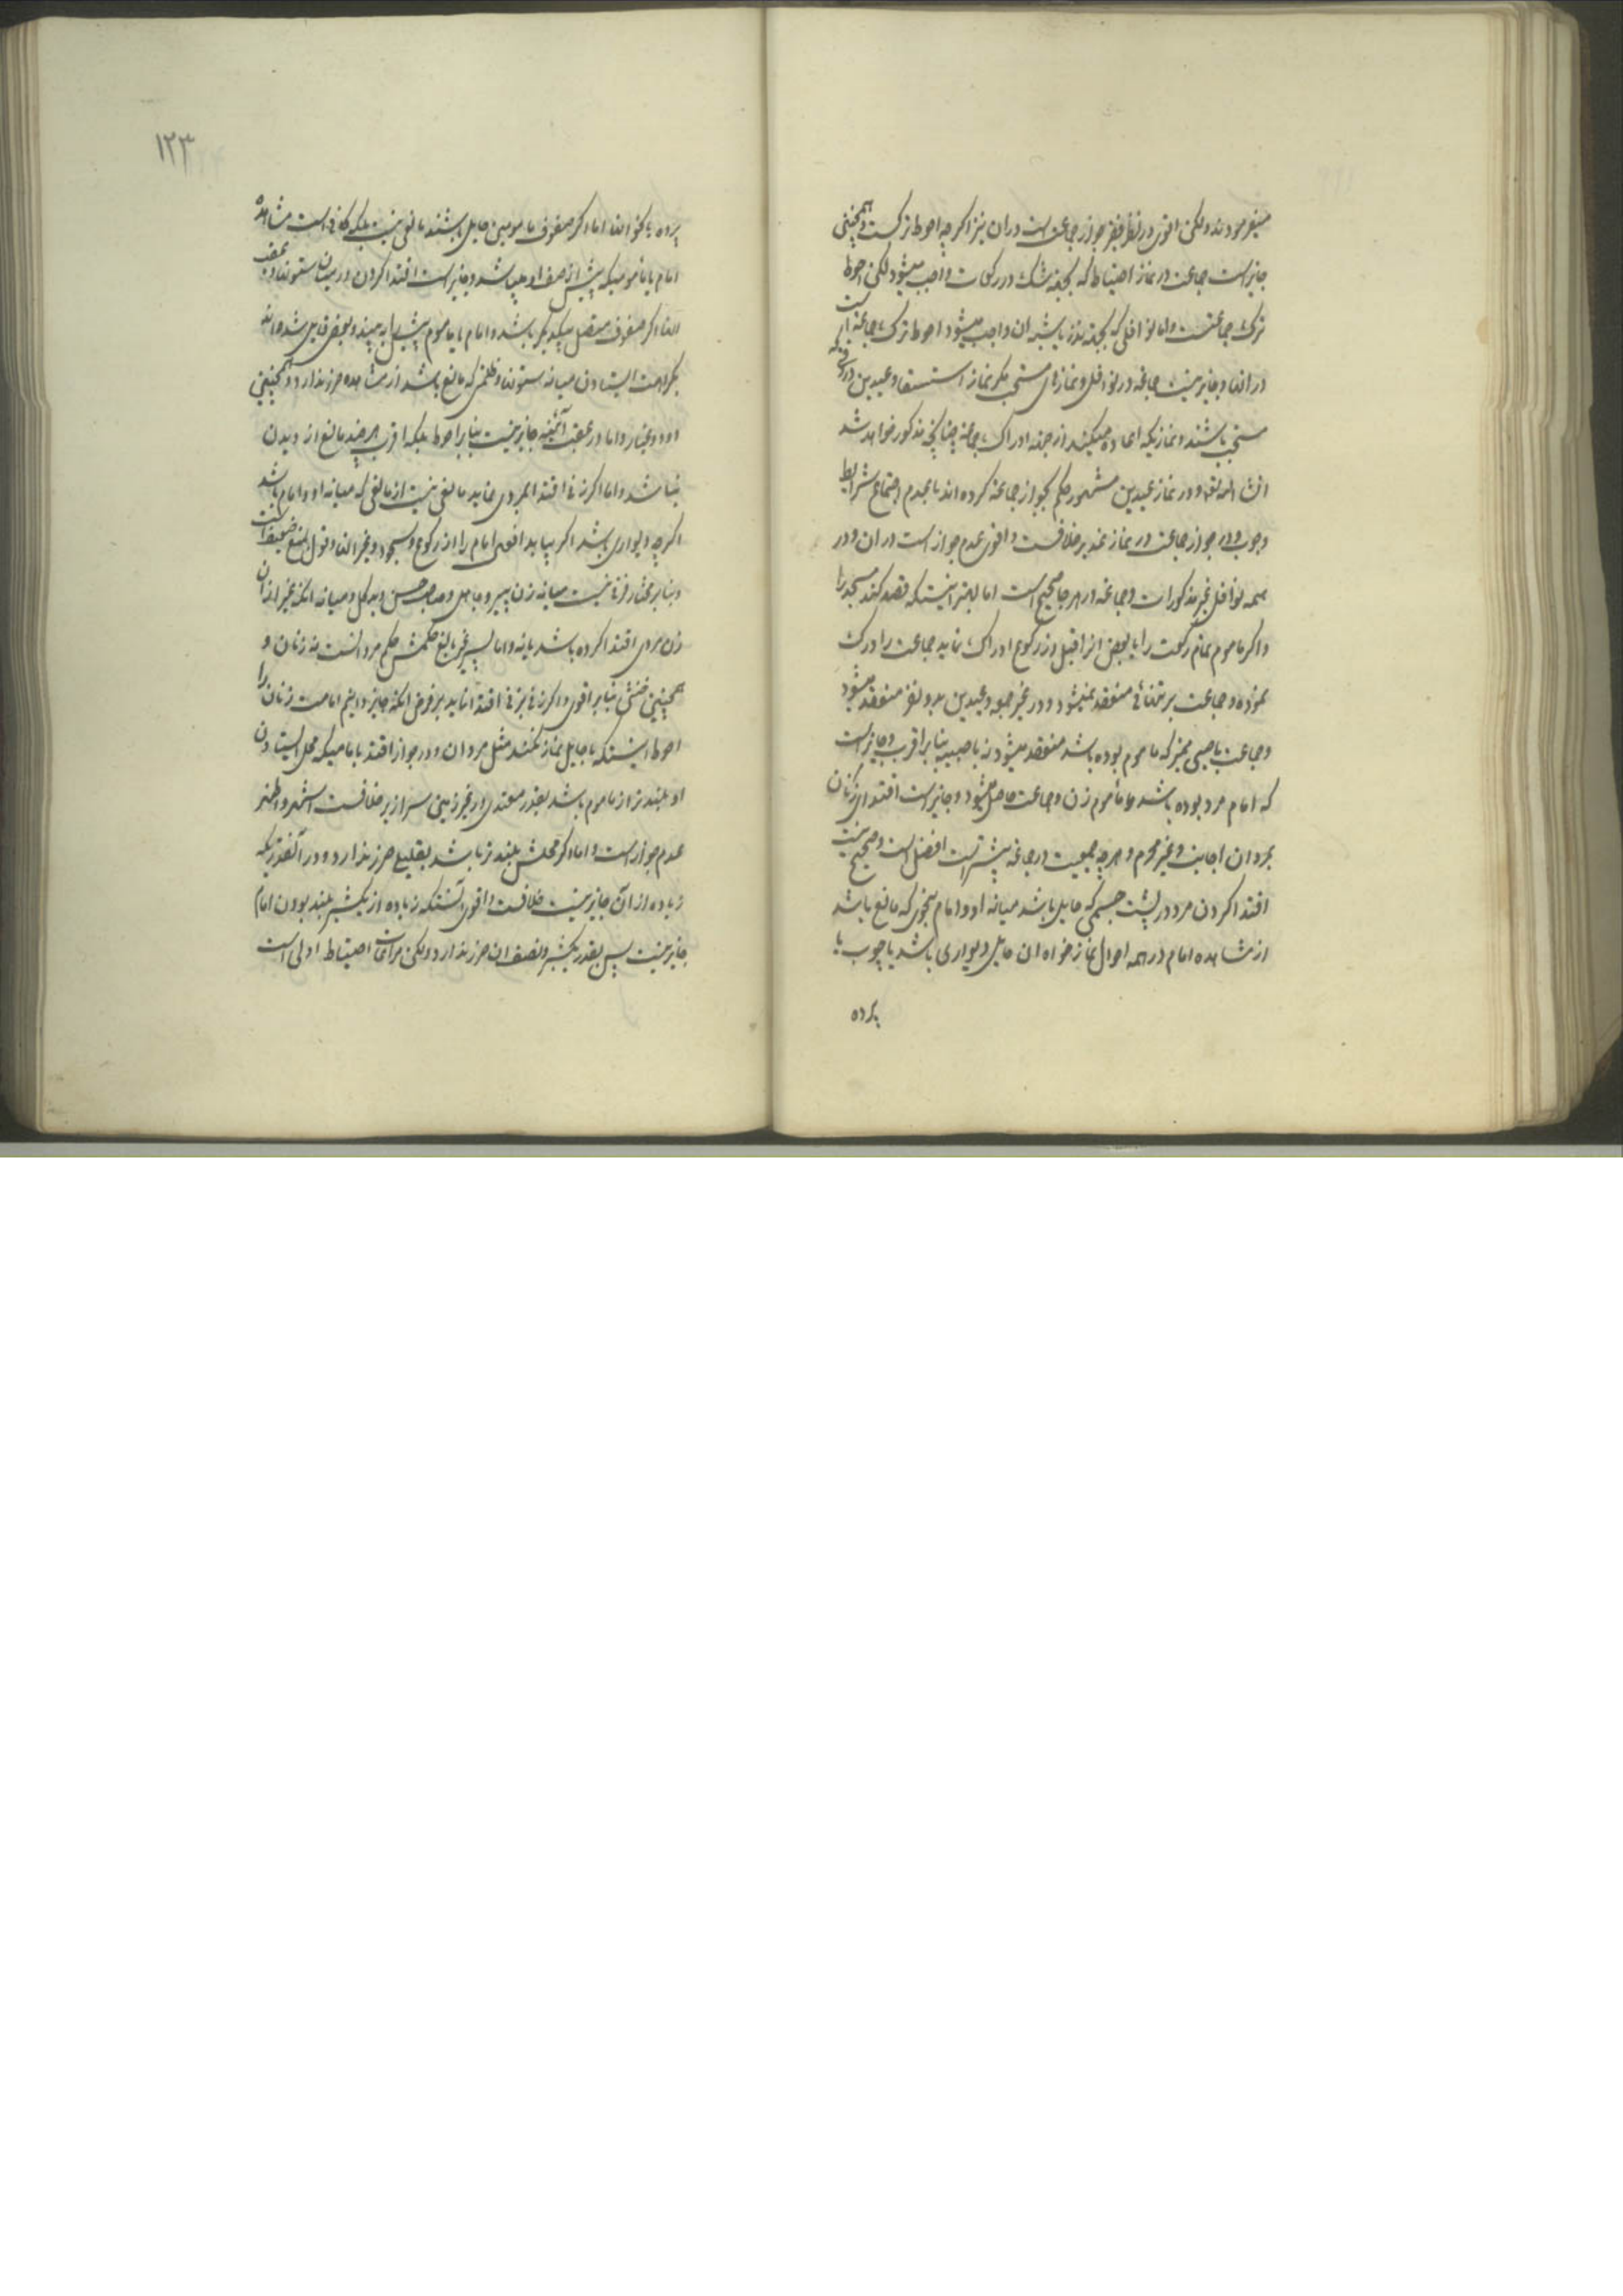 میفرمودند ولکن اقوی در نظر فقیر جواز جماعت است در ان نیز اگرچه احوط ترکست و همچنین
جایز است جماعت در نماز احتیاط که بجهة شک در رکعات واجب میشود لکن احوط
ترک جماعتست و اما نوافلی که بجهة نذر یا شبه ان واجب میشود احوط ترک جماعة است
در انها و جایز نیست جماعة در نوافل و نمازهای مستحب مکر نماز استسقا و عیدین در وقتیکه
مستحب باشند و نمازیکه اعاده میکنند از جهة ادراک جماعة چنانچه مذکور خواهد شد
انشاء الله تعالی و در نماز عیدین مشهور حکم بجواز جماعة کرده اند با عدم اجتماع شرایط
وجوب و در جواز جماعت در نماز غدیر خلافست و اقوی عدم جواز است در ان و در
همه نوافل غیر مذکورات و جماعة در هر جا صحیح است اما بهتر اینستکه قصد کند مسجد را
و اکر ماموم تمام رکعت را یا بعض انرا قبل از رکوع ادراک نماید جماعت را درک
نموده و جماعت بر تنهائی منعقد نمیشود و در غیر جمعه و عیدین بدو نفر منعقد میشود
و جماعت با صبی ممیز که ماموم بوده باشد منعقد میشود نه با صبیه بنا بر اقرب و جایز است
که امام مرد بوده باشد و ماموم زن و جماعت حاصل میشود و جایز است اقتدای زنان
بمردان اجانب و غیر محرم و هر چه جمعیت در جماعة بیشتر است افضل است و صحیح نیست
اقتدا کردن مرد در پشت جسمی که حایل باشد میانه او و امام بنحوی که مانع باشد
از مشاهده امام در همه احوال نماز خواه ان حایل دیواری باشد یا چوب یا
پرده
۱۲۳
پرده یا نحو انها اما اکر صفوف مامومین حایل باشند مانعی نیست بلکه کافی است مشاهده
امام یا مامومیکه پیش از صف او میباشد و جایز است اقتدا کردن در میان ستونها و عقب
انها اکر صفوف متصل بیکدیکر باشد و امام یا ماموم پیش را به بیند و بعضی قایل شده اند
بکراهت ایستادن میانه ستونها و ظلمتی که مانع باشد از مشاهده ضرر ندارد و همچنین
دود و غبار و اما در عقب آئینه جایز نیست بنا بر احوط بلکه اقرب هر چند مانع از دیدن
نباشد و اما اکر زنی اقتدا بمردی نماید مانعی نیست از مانعی که میانه او و امام باشد
اکرچه دیواری باشد اکر بیابد افعال امام را از رکوع و سجود و غیر انها و قول بمنع ضعیف است
و بنا بر مختار فرقی نیست میانه زن پیر و جاهل و صاحب حسن و بد کل و میانه انکه غیر از ان
زن مردی اقتدا کرده باشد یا نه و اما پسر غیر بالغ حکمش حکم مردانست نه زنان و
همچنین خنثی بنا بر اقوی و اکر زنی بزنی اقتدا نماید بر فرض انکه جایز دانیم امامت زنان را
احوط اینستکه با حایل نماز نکنند مثل مردان و در جواز اقتدا بامامیکه محل ایستادن
او بلندتر از ماموم باشد بقدر معتدی در غیر زمین سرازیر خلافست اشهر و اظهر
عدم جواز است و اما اکر محلش بلندتر باشد بقلیلی ضرر ندارد و در آنقدریکه
زیاده از آن جایز نیست خلافست و اقوی آنستکه زیاده از یکشبر بلند بودن امام
جایز نیست پس بقدر یکشبر و نصف ان ضرر ندارد ولکن مراعات احتیاط اولی است